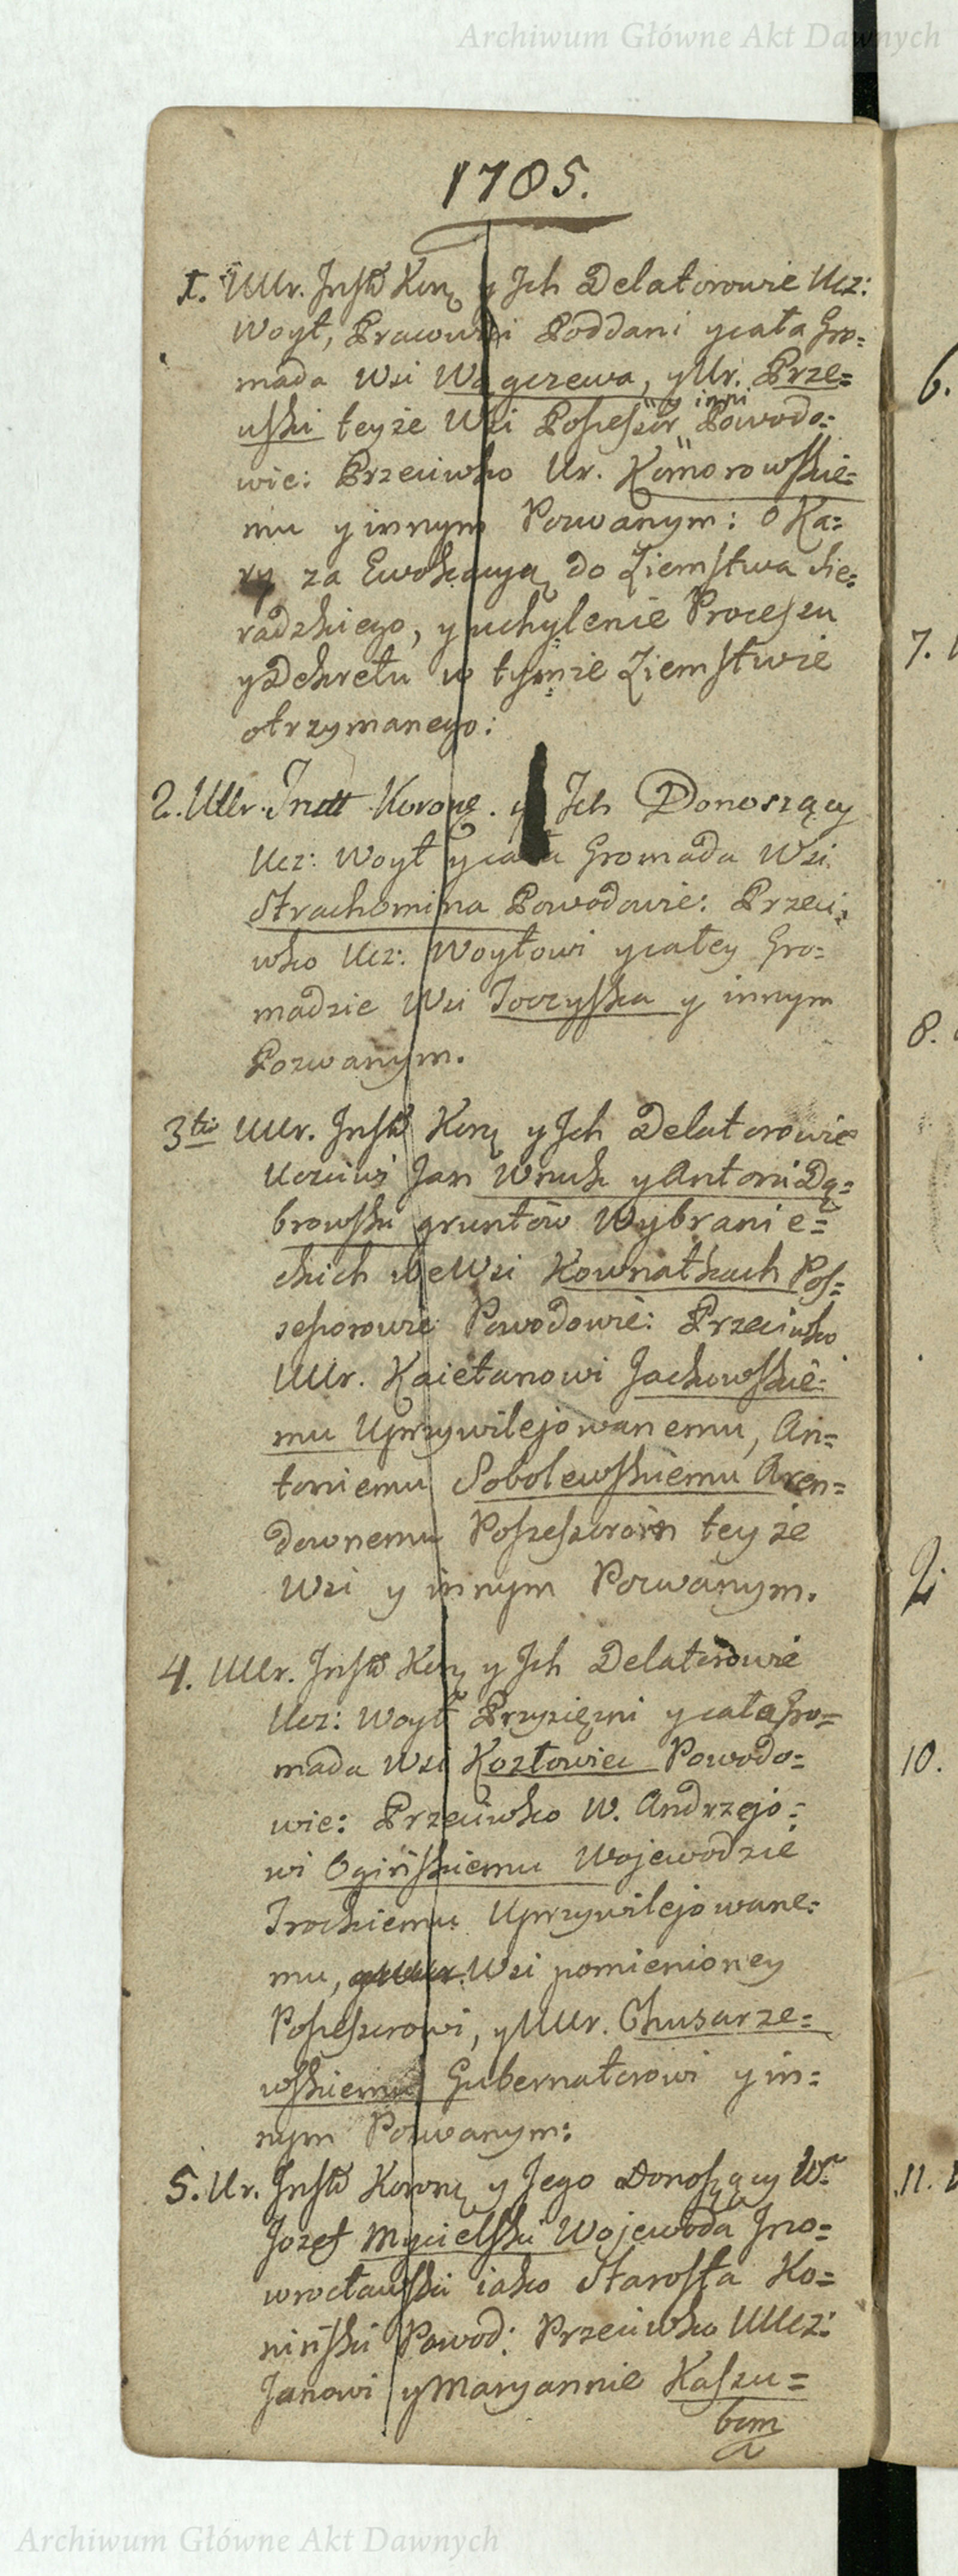 Archiwum Główne Akt Dawnych
1785.
1. UUr. Instt Kor: y Ich Delatorowie Ucz:
Woyt, Pracowici Poddani y cała Gro=
mada Wsi Wągczewa, y Ur. Prze=
uski teyże Wsi Possessor y inni Powodo=
wie: Przeciwko Ur. Komorowskie=
mu y innym Pozwanym: o Ka=
ry za Ewokacyą do Ziemstwa Sie=
radzkiego, y uchylenie Processu
y Dekretu w tymże Ziemstwie
otrzymanego:
2. UUr. Instt Koronę. y Ich Donoszący
Ucz: Woyt y cała Gromada Wsi
Strachomina Powodowie: Przeci=
wko Ucz: Woytowi y całey Gro=
madzie Wsi Toczyska y innym
Pozwanym.
3tio UUr. Instt Kor: y Ich Delatorowie
Uczciwi Jan Wnuk y Antoni Dą=
browski gruntów Wybranie=
ckich we Wsi Kownatkach Pos=
sessorowie Powodowie: Przeciwko
UUr. Kaietanowi Jachowskie=
mu Uprzywilejowanemu, An=
toniemu Sobolewskiemu Aren=
downemu Possessorom teyże
Wsi y innym Pozwanym.
4. UUr. Instt Kor: y Ich Delatorowie
Ucz: Woyt Przysięzni y cała Gro=
mada Wsi Kozłowiec Powodo=
wie: Przeciwko W. Andrzejo=
wi Ogińskiemu Wojewodzie
Trockiemu Uprzywilejowane=
mu, Wsi pomienioney
Possessorowi, y UUr. Chusarze=
wskiemu Gubernatorowi y in=
nym Pozwanym:
5. Ur. Instt Koronę y Jego Donoszący W.
Jozef Mycielski Wojewoda Ino=
wrocławski iako Starosta Ko=
niński Powod: Przeciwko UUcz:
Janowi y Maryannie Kaszu=
bom
6.
7.
8.
10.
11.
Archiwum Główne Akt Dawnych